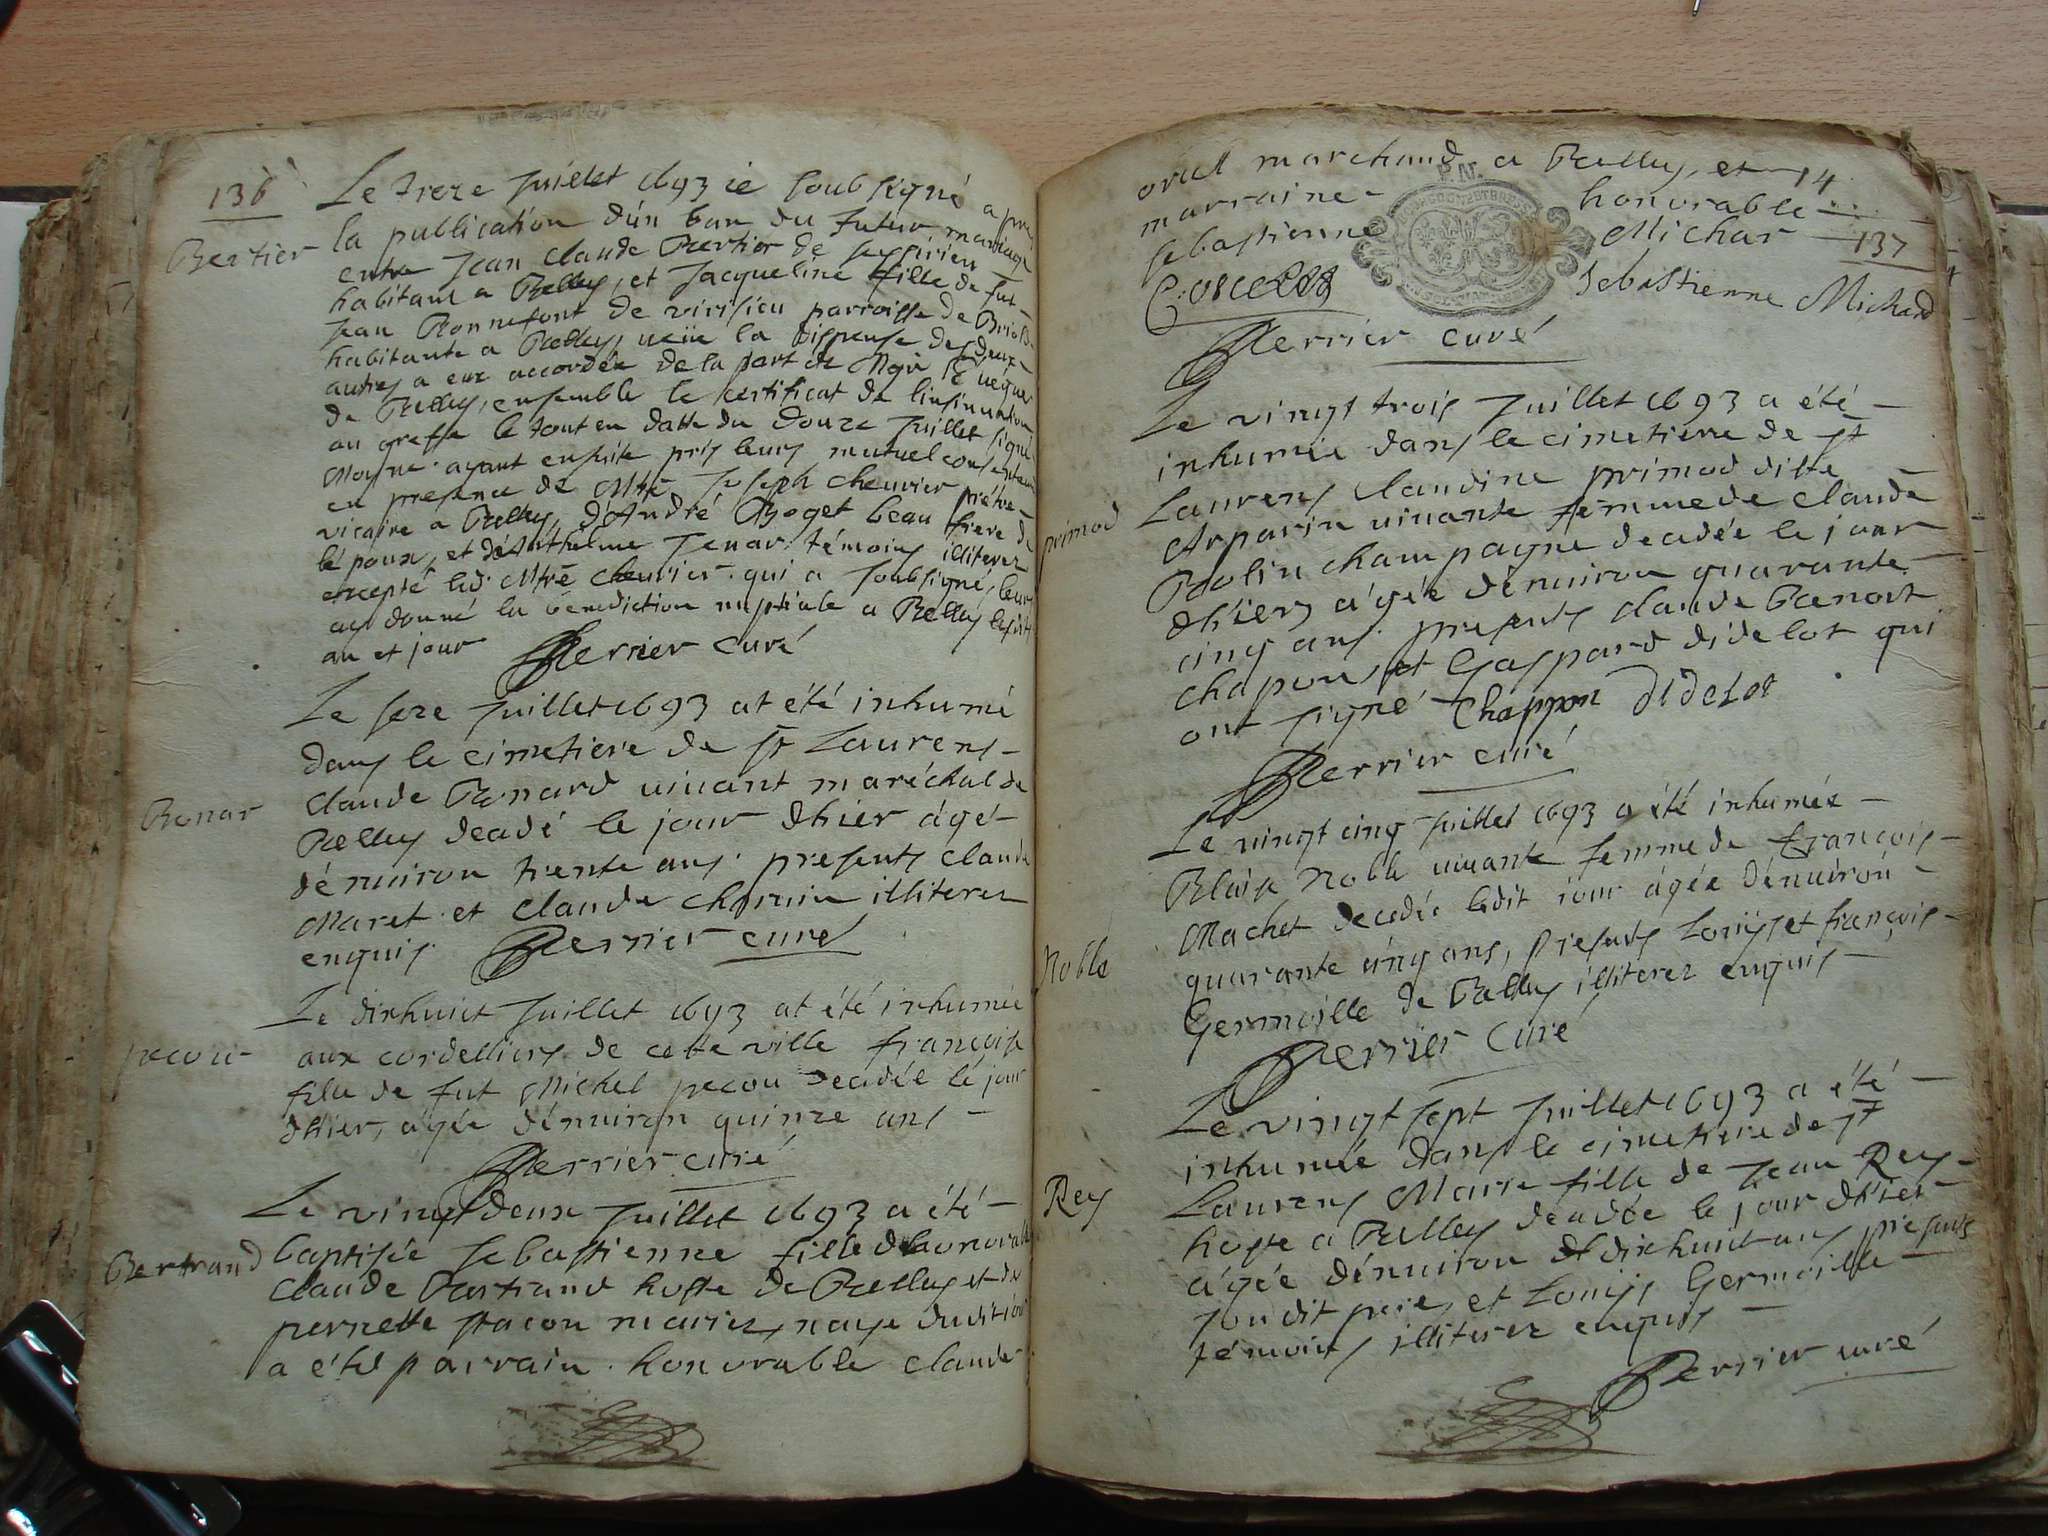 136
Le treze Juillet 1693 ie soubsigné apres
Bertier la publication d'ún ban du futur mariage
entre Jean claude Bertier de
habitant a Belley, et Jacqueline fille de fut
Jean Bonnefont de virisieu parroisse de
habitante a Belley, veüe la dispense des deux
autres a eux accordée de la part de Mgr L'Evéque
de Belley, ensemble le certificat de l'insinuation
au greffe le tout en datte du douze Juillet signé
Moyne. ayant ensuite pris leurs mutuel consentement
en presence de Mre Joseph cheurier prétre
vicaire a Belley, d'André Boget beau frere de
lépoux, et d'Anthelme Jenar témoins illiterez
excepté led. Mre cheurier qui a soubsigné, leur
ay donné la bénédiction nuptiale a Belley lesdits
an et jour Perrier curé
Le seze Juillet 1693 at été inhumé
dans le cimetiere de st Laurens
Bonar claude Bonard viuant maréchal de
Belley decadé le jour d'hier ágé
d'énuiron trente ans. presents claude
Maret et claude charuin illiterez
enquis. Perrier curé
Le dixhuict Juillet 1693 at été inhumée
pecou aux cordelliers de cette ville françoise
fille de fut Michel pecou decadée le jour
d'hier, agée d'énuiron quinze ans
Perrier curé
Le vingt deux Juillet 1693 a été
Bertrand baptisée sebastienne fille d'honorable
claude Bertrand hoste de Belley et de
pernette stacon mariez, naye dudit jour
a été parrain. honorable claude
marchand a Belley, et 14
marraine honorable
sebastienne Michar 137
P.N.
sebastienne Michard
Perrier curé
Le vingt trois Juillet 1693 a été
inhumée dans le cimetiere de st
primod Laurens claudine primod ditte
Arparin viuante femme de claude
Bolin champagne decadée le jour
d'hier, ágée d'énuiron quarante
cinq ans. presents claude Benoit
chapon, et Gaspard didelot qui
ont signé Chappon didelot
Perrier curé
Le vingt cinq Juillet 1693 a été inhumée
Blaise Noble viuante femme de françois
Machet decedée ledit jour ágée d'énuirón
Noble quarante cinq ans, presents Loüis et françois
Germaille de Belley illiterez enquis
Perrier curé
Le vingt sept Juillet 1693 a été
inhumée dans le cimetiere de st
Rey Laurens Marie fille de Jean Rey
hoste a Belley decadée le jour d'hier
ágée d'énuiron dixhuict ans presents
sondit pere, et Loüis Germaille
témoins illiterez enquis
Perrier curé